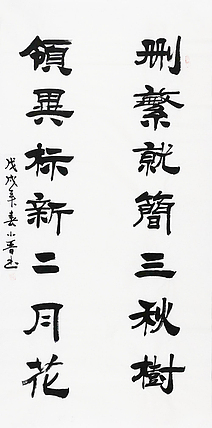 刪繁就簡三秋樹
領異标新二月花
戊戌年春小晋书